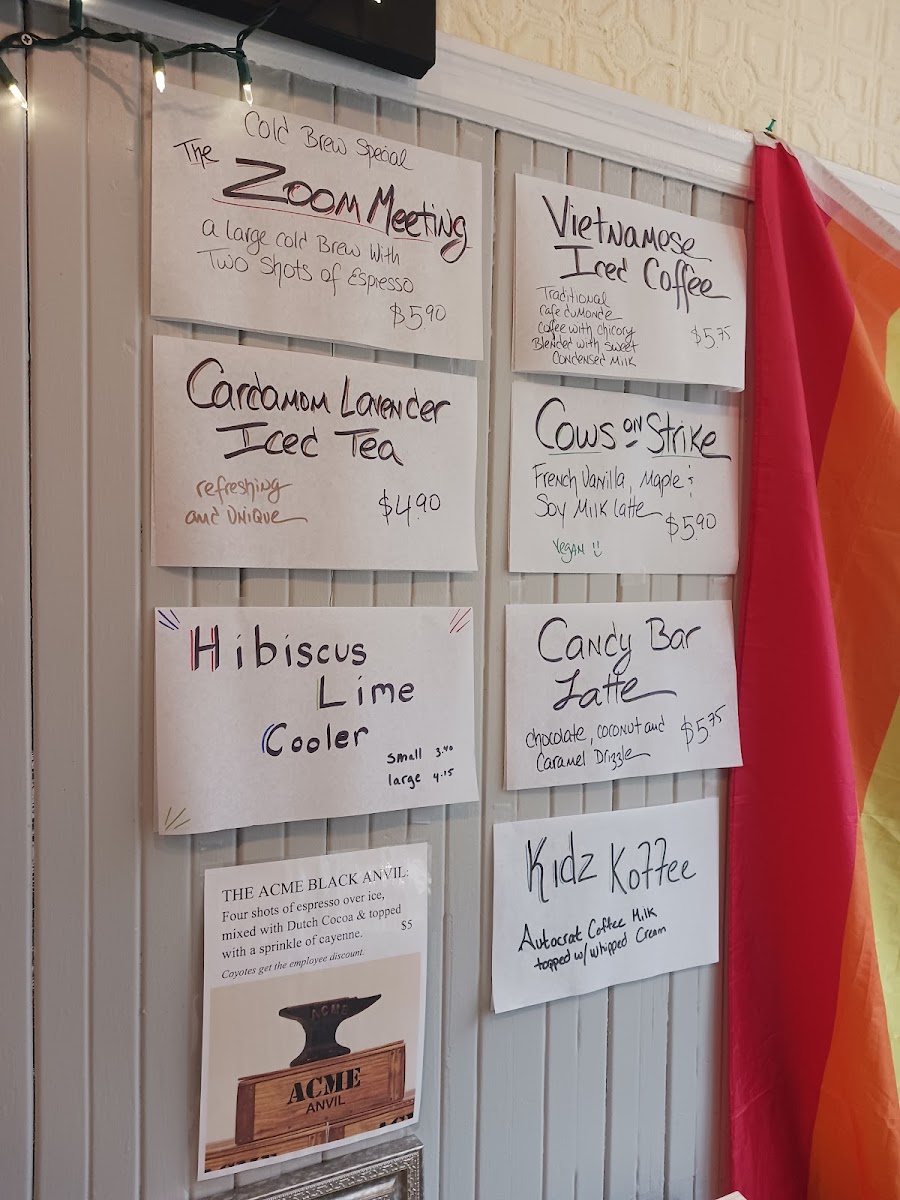 Cold Brew Special
The Zoom Meeting
a large cold Brew with
Two Shots of Espresso
$5.90
Cardamom Lavender
Iced Tea
refreshing
and unique
$4.90
Hibiscus
Lime
Cooler
small 3.40
large 4.15
THE ACME BLACK ANVIL:
Four shots of espresso over ice,
mixed with Dutch Cocoa & topped
with a sprinkle of cayenne. $5
Coyotes get the employee discount.
ACME
ACME
ANVIL
Vietnamese
Iced Coffee
Traditional
cafe dumonde
coffee with chicory
Blended with sweet
Condensed Milk
$5.75
Cows on Strike
French Vanilla, Maple &
Soy Milk latte
$5.90
vegan
Candy Bar
Latte
chocolate, coconut and
Caramel Drizzle
$5.75
Kidz Koffee
Autocrat Coffee Milk
topped w/ whipped Cream